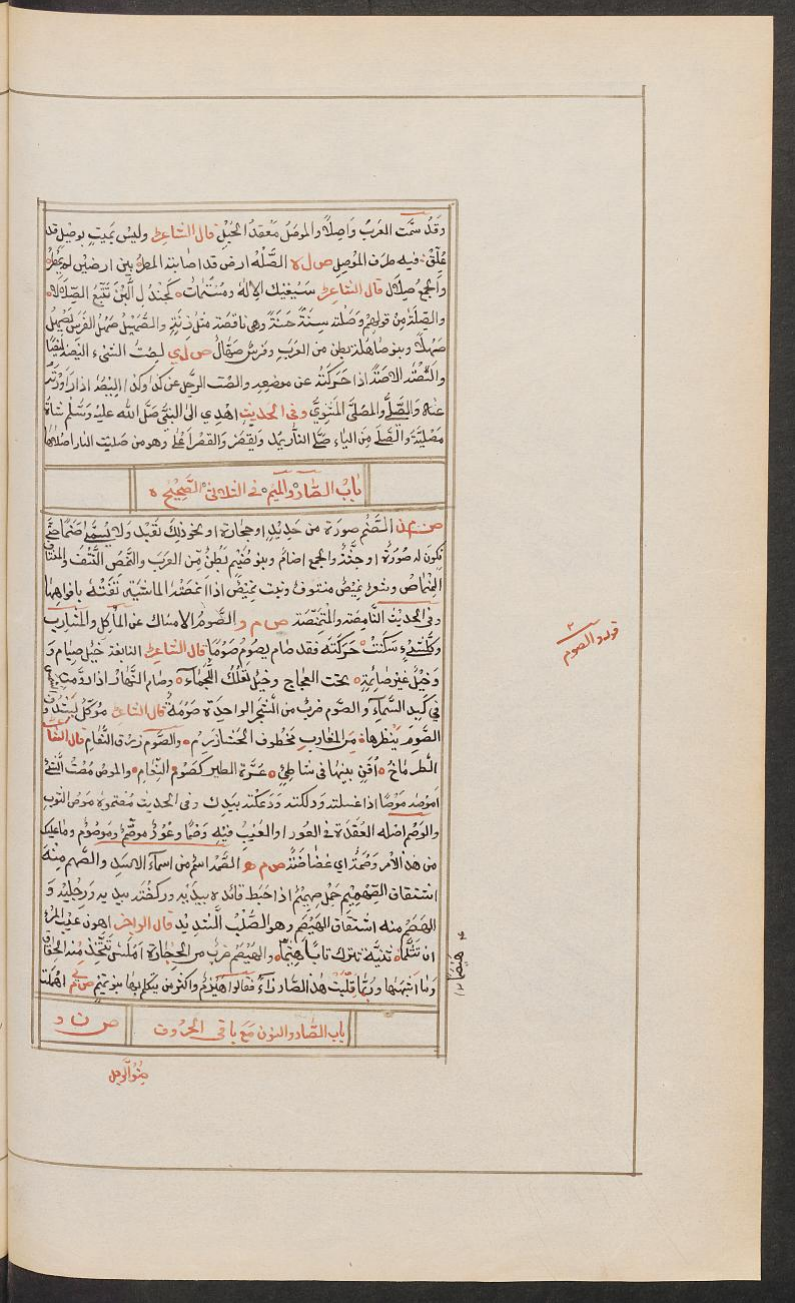 وقد سمّت العرب واصلاً والموصل معقد الحبل قال الشاعر وليس لميت بوصيل قد
علق فيه طرف الموصل ص ل ه الصلة ارض قد اصابتها المطر بين ارضين لم يمطرا
والجمع صلال قال الشاعر سيغنيك الاله ومسنمات كجندل لبن تتبع الصلالا
والصلة من قولهم وصلته صلة حسنة وهي ناقصة مثل زنة والصهيل صهل الفرس يصهل
صهلا وبنو صاهلة بطن من العرب وفرس صهال ص ل ي لصت الشيء
اذا حركته عن موضعه والصت الرجل عن كذا وكذا اذا راودته
عنه والصلي والمصلى المشوي وفي الحديث اهدي الى النبي صلى الله عليه وسلم شاة
مصلية والصلى من الياء صلى النار يمد ويقصر والقصر اعلى وهو من صليت النار اصلاها
باب الصاد والميم في الثلاثي الصحيح
ص م ن الصنم صورة من حديد او حجارة او نحو ذلك تعبد ولا يسمى صنما حتى
تكون له صورة او جثة والجمع اصنام وبنو صنيم بطن من العرب والنمص النتف والمنقاش
المنماص وشعر نميص منتوف ونبت نميص اذا نمصته الماشية نتفته بافواهها
وفي الحديث النامصة والمتنمصة ص م و الصوم الامساك عن المأكل والمشارب
وكل شيء سكنت حركته فقد صام يصوم صوما قال الشاعر النابغة خيل صيام و
وخيل غير صائمة تحت العجاج وخيل تعلك اللجما وصام النهار اذا دومت
في كبد السماء والصوم ضرب من الشجر الواحدة صومة قال الشاعر موكل بشدوف
الصوم ينظرها من المغارب مخطوف الحشا زرم والصوم زرق النعام قال الشاعر
الطرماح في شناظي اقن بينها عرة الطير كصوم النعام والموص مصت الشيء
اموصه موصا اذا غسلته ودلكته ودعكته بيدك وفي الحديث مصتموه موص الثوب
والوصم اصله العقدة في العود او العيب فيه وصما وعود موصم وموصوم وما عليك
من هذا الامر وصمة اي غضاضة ص م ه الصمة اسم من اسماء الاسد والصهم منه
اشتقاق الصهميم جمل صهميم اذا خبط قائده بيديه وركضته بيديه ورجليه و
الهصم منه اشتقاق الهيصم وهو الصلب الشديد قال الراجز اهون عيب المرء
ان تثلما ثنية تترك نابا هيصما والهيصم ضرب من الحجارة املس تتخذ منه الحقاق
وما اشبهها وربما قلبت هذا الصاد زاء فقالوا هيزم واكثر من يتكلم بها بنو تميم ص م ي اهملت
باب الصاد والنون مع باقي الحروف
ص ن و
صنو الرجل
قوله والصوم
هيصم